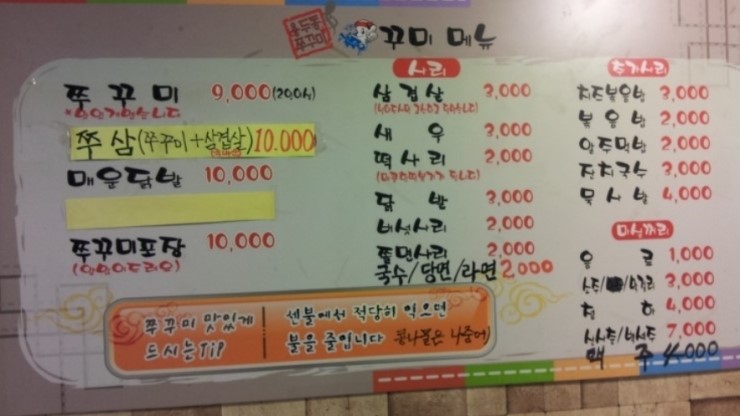 용두동
쭈꾸미
꾸미 메뉴
쭈꾸미 9,000(200g)
쭈삼(쭈꾸미+삼겹살)10.000
매운닭발 10,000
쭈꾸미포장 10,000
사리
삼겹살 3,000
새우 3,000
떡사리 2,000
닭발 3,000
버섯사리 2,000
쫄면사리 2,000
국수/당면/라면 2,000
추가사리
치즈볶음밥 3,000
볶음밥 2,000
알주먹밥 2,000
잔치국수 3,000
묵사발 4,000
마실꺼리
음료 1,000
3,000
청하 4,000
7,000
맥주 4,000
쭈꾸미 맛있게
드시는Tip
센불에서 적당히 익으면
불을 줄입니다 콩나물은 나중에